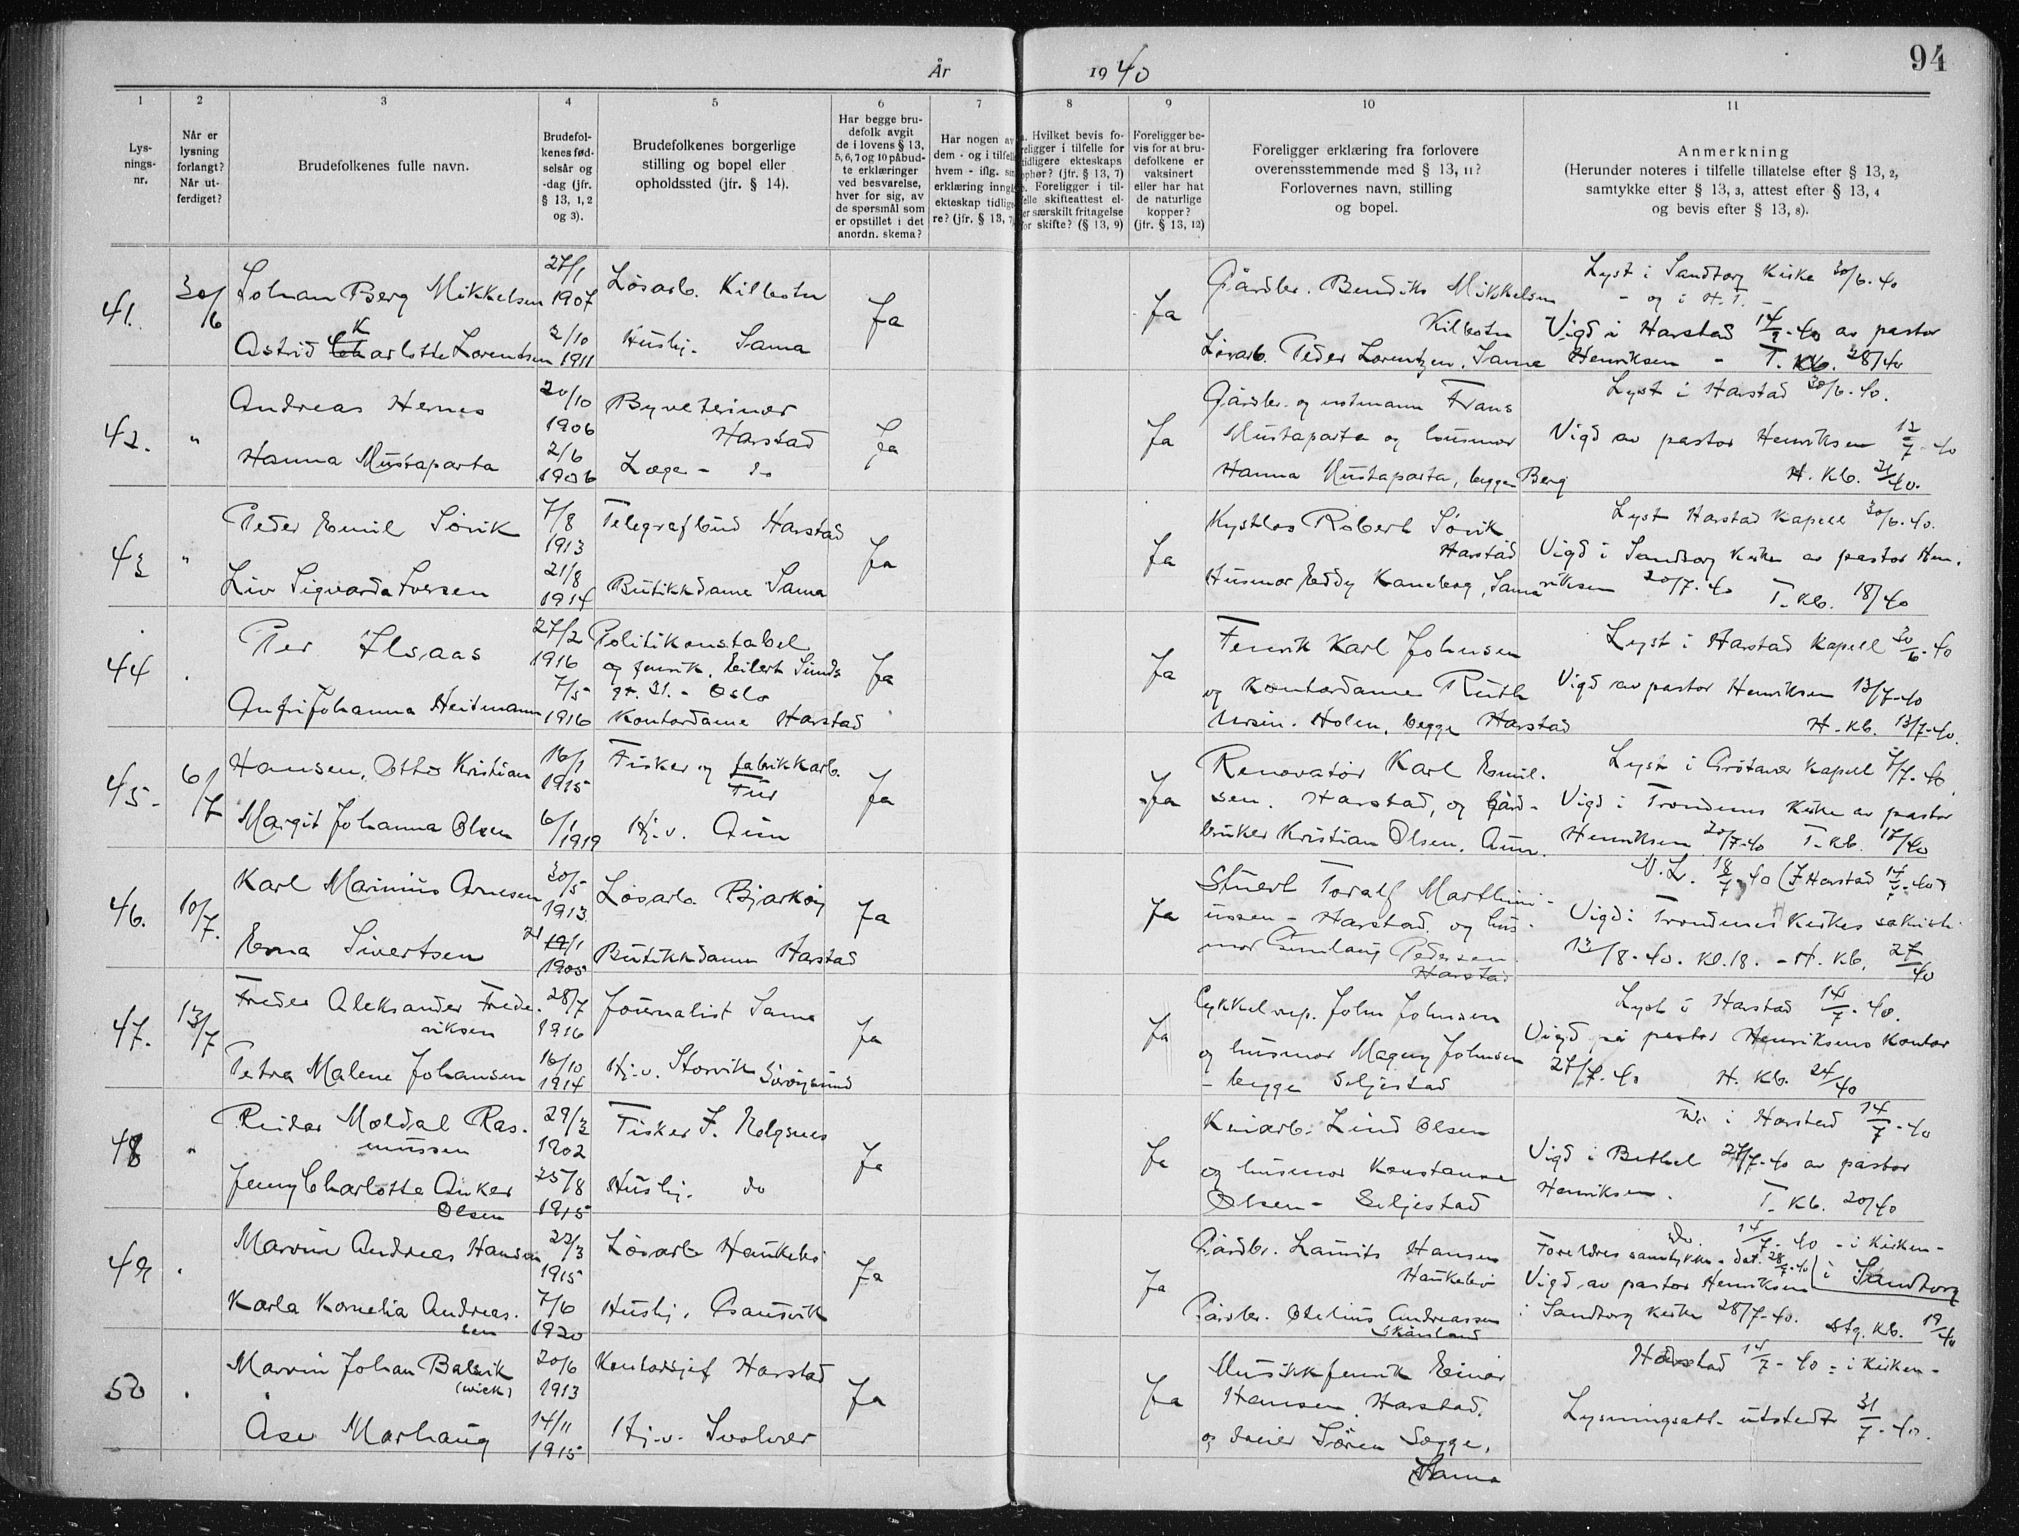 År 1940
94
1 2 3 4 5 6 7 8 9 10 11
Lys-
nings-
nr.
Når er
lysning
forlangt?
Når ut-
ferdiget?
Brudefolkenes fulle navn.
Brudefol-
kenes fød-
selsår og
-dag (jfr.
§ 13, 1, 2
og 3).
Brudefolkenes borgerlige
stilling og bopel eller
opholdssted (jfr. § 14).
Har begge bru-
defolk avgit
de i lovens § 13,
5, 6, 7 og 10 påbud-
te erklæringer
ved besvarelse,
hver for sig, av
de spørsmål som
er opstillet i det
anordn. skema?
Har nogen av
dem - og i tilfelle
hvem - iflg. sin
erklæring inngåt
ekteskap tidlige-
re? (jfr. § 13, 7)
Hvilket bevis fo-
religger i tilfelle for
tidligere ekteskaps
ophør? (jfr. § 13, 7)
Foreligger i til-
felle skifteattest el-
er særskilt fritagelse
for skifte? (§ 13, 9)
Foreligger be-
vis for at bru-
defolkene er
vaksinert
eller har hat
de naturlige
kopper?
(jfr. § 13, 12)
Foreligger erklæring fra forlovere
overensstemmende med § 13, 11?
Forlovernes navn, stilling
og bopel.
Anmerkning
(Herunder noteres i tilfelle tillatelse efter § 13, 2,
samtykke efter § 13, 3, attest efter § 13, 4
og bevis efter § 13, 8).
41. 30/6 Johan Berg Mikkelsen 27/1 1907 Løsarb. Kilbotn Ja Ja
Astrid Karlotte Lorentsen 2/10 1911 Hushj. Sama
Gårdbr. Bendiks Mikkelsen
Kilbotn
Løsarb. Peder Lorentzen, Sama
Lyst i Sandtorg Kirke 30/6-40
- og i H.T. -
Vigd i Harstad 14/9-40 av pastor
Henriksen - T. Kb. 28/40
42. " Andreas Hernes 20/10 1906 Byveterinær Harstad Ja Ja
Hanna Mustaparta 2/6 1906 Læge - do
Gårdbr. og notmann Frans
Mustaparta og husmor
Hanna Mustaparta, begge Berg
Lyst i Harstad 30/6-40.
Vigd av pastor Henriksen 12/7-40
H. Kb. 21/40.
43 " Peder Emil Sørvik 7/8 1913 Telegrafbud Harstad Ja Ja
Liv Sigvarda Iversen 21/8 1914 Butikkdame Sama
Kystlos Robert Sørvik
Harstad
Husmor Eddy Kaneberg, Sama
Lyst Harstad Kapell 30/6-40.
Vigd i Sandtorg Kirke av pastor Hen-
riksen 20/7-40 T. Kb. 18/40
44 . Per Ilsaas 27/2 1916 Politikonstabel
og fenrik, Eilert Sunds
gt. 31. - Oslo Ja Ja
Anfri Johanna Heitmann 7/5 1916 Kontordame Harstad
Fenrik Karl Johnsen
og Kontordame Ruth
Ursin-Holm, begge Harstad
Lyst i Harstad Kapell 30/6-40
Vigd av pastor Henriksen 13/7-40
H. Kb. 13/7-40.
45. 6/7 Hansen, Otto Kristian 16/1 1915 Fisker og fabrikkarb. Ja Ja
Margit Johanna Olsen 6/1 1919 Hj.v. Aun
Renovatør Karl Emil-
sen. Harstad, og Gård-
bruker Kristian Olsen, Aun.
Lyst i Grøtavær Kapell 7/7-40
Vigd i Trondenes Kirke av pastor
Henriksen 20/7-40 T. Kb. 17/40
46. 10/7. Karl Marinius Arnesen 30/5 1913 Løsarb. Bjarkøy Ja Ja
Erna Sivertsen 1905 Butikkdame Harstad
Stuert Toralf Marthini-
ussen - Harstad, og hus-
mor Gunlaug Pedersen
Harstad
N.L. 18/7-40 (I Harstad 14/7-40)
Vigd i Trondenes Kirkes sakristi
13/8-40. Kl. 18. - H. Kb. 27/40
47. 13/7 Freder Aleksander Frede-
riksen 28/7 1916 Journalist Sama Ja Ja
Petra Malene Johansen 16/10 1914 Hj.v. Storvik Sørøysund
Cykkelrep. John Johnsen
og husmor Magny Johnsen
- begge Seljestad
Lyst i Harstad 14/7-40.
Vigd på pastor Henriksens Kontor
27/7-40 H. Kb. 24/40
48 " Reidar Moldal Ras-
mussen 29/3 1902 Fisker Ja Ja
Jenny Charlotte Anker
Olsen 25/8 1915 Hushj. do
Lind Olsen
og husmor Konstanse
Olsen - Seljestad
Do i Harstad 14/7-40
Vigd i Bethel 27/7-40 av pastor
Henriksen. T. Kb. 20/40
49 . Marvin Andreas Hansen 22/3 1915 Løsarb. Haukebø Ja Ja
Karla Kornelia Andreas-
sen 7/6 1920 Hushj. Gausvik
Gårdbr. Laurits Hansen
Haukebø
Gårdbr. Andreassen
Skånland
Do. 14/7-40 - i Kirken -
Foreldres samtykke - dat. 28/7-40 i Sandtorg
Vigd av pastor Henriksen
i Sandtorg Kirke 28/7-40. Stg. Kb. 19/40
50 . Marvin Johan Balsvik
(wick) 20/6 1913 Kontorsjef Harstad Ja Ja
Åse Marhaug 14/11 1915 Hj.v. Svolvær
Musikkfenrik Einar
Hansen, Harstad,
og Søren Sagge,
Sama
Harstad 14/7-40 - i Kirken -
Lysningsatt. utstedt 31/7-40.